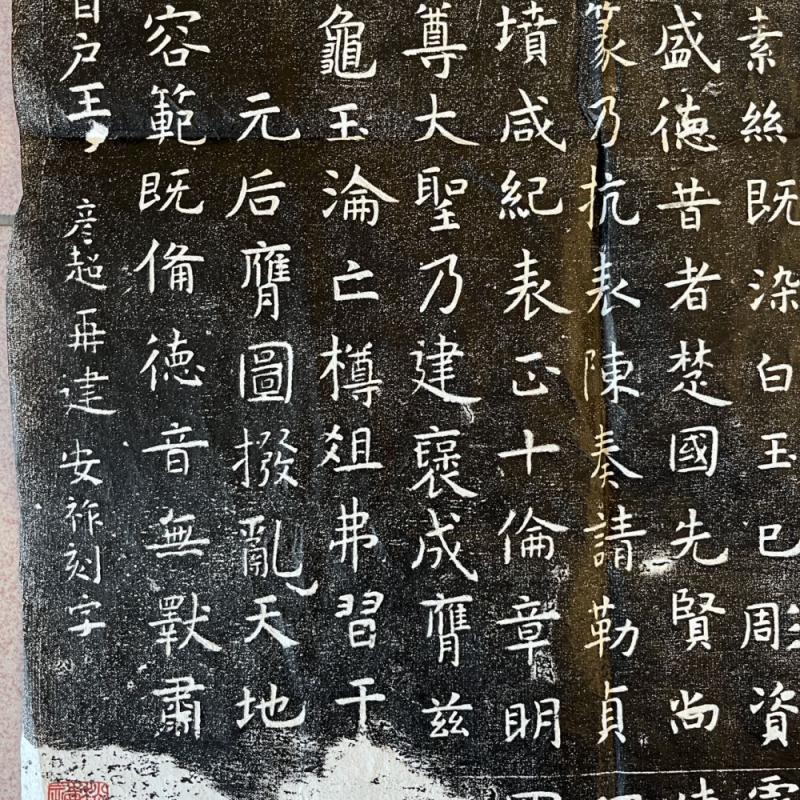 素絲既染白玉已彫資
盛德昔者楚國先賢尚
篆乃抗表陳奏請勒貞
墳咸紀表正十倫章明
尊大聖乃建襃成膺茲
龜玉淪亡樽俎弗習干
元后膺圖撥亂天地
容範既備德音無斁肅
戶王彥超再建 安祚刻字